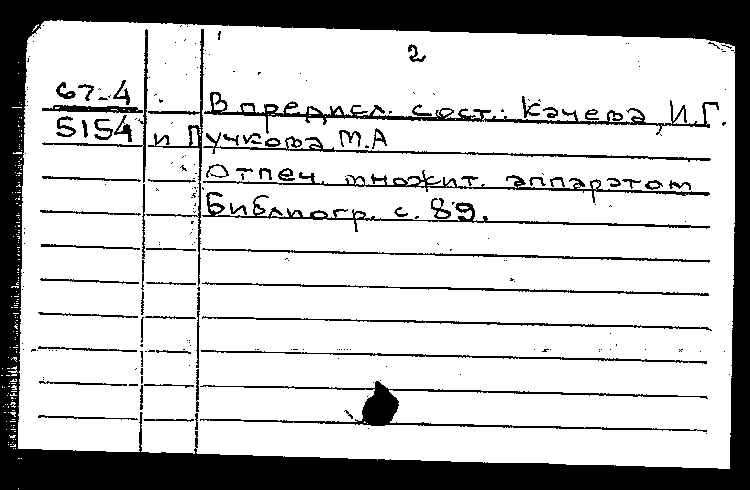 2
67-4 В предисл. сост.: Качева, И.Г.
5154 и Пучкова М.А
Отпеч. множит. аппаратом
Библиогр. с. 89.